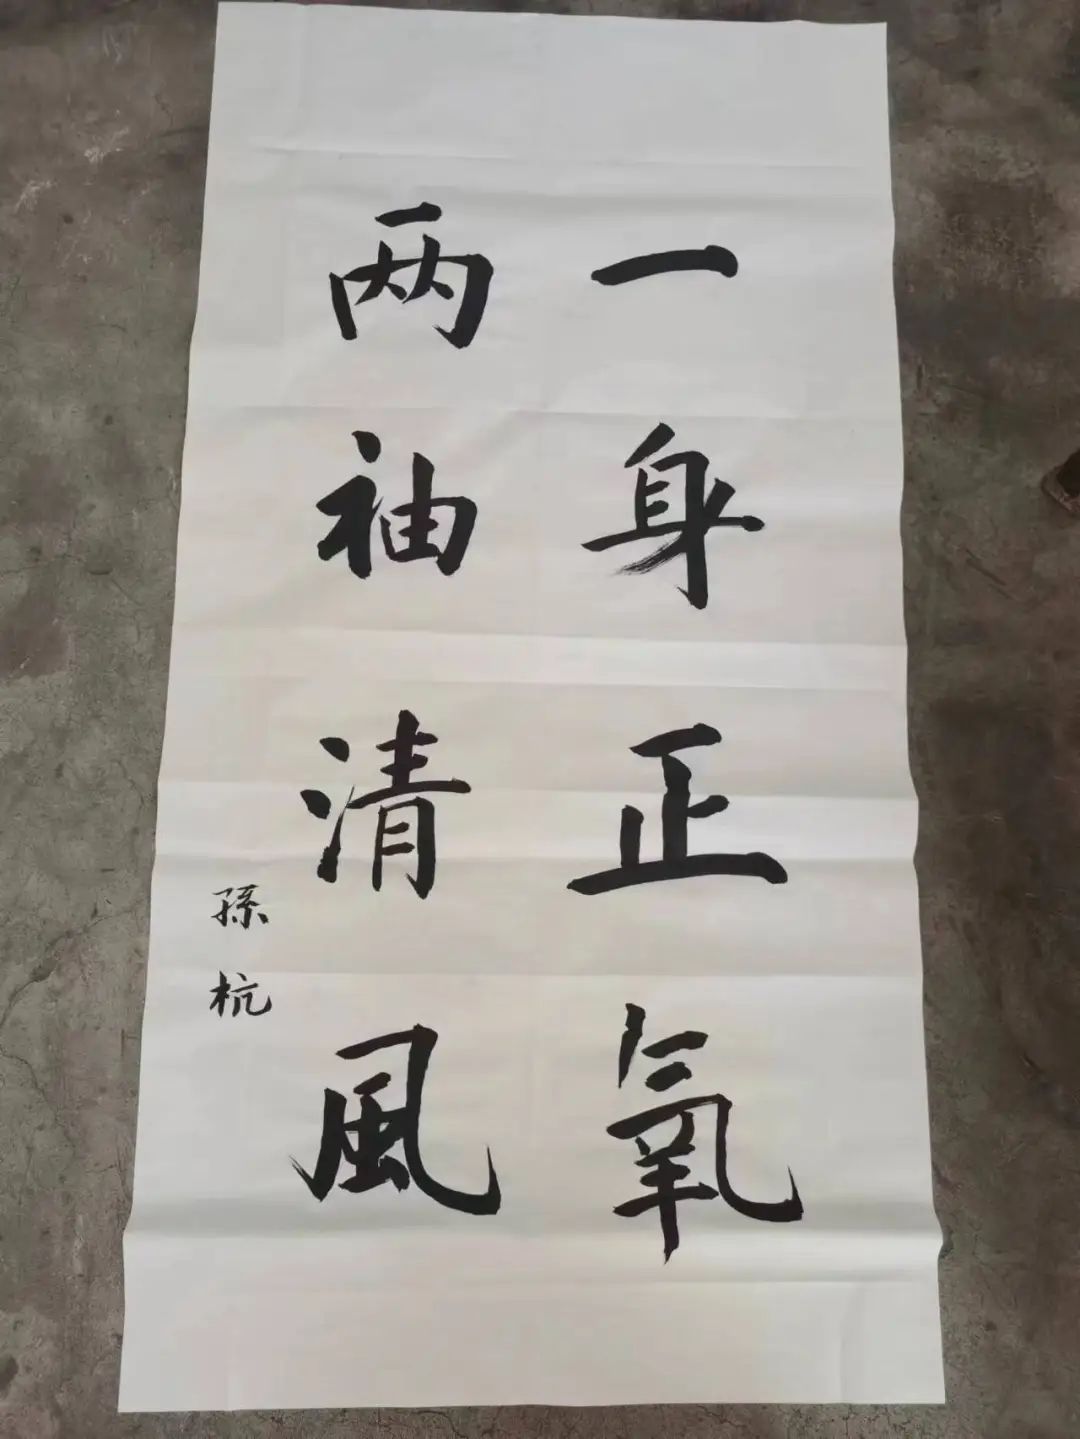 一身正氧
两袖清風
孫杭